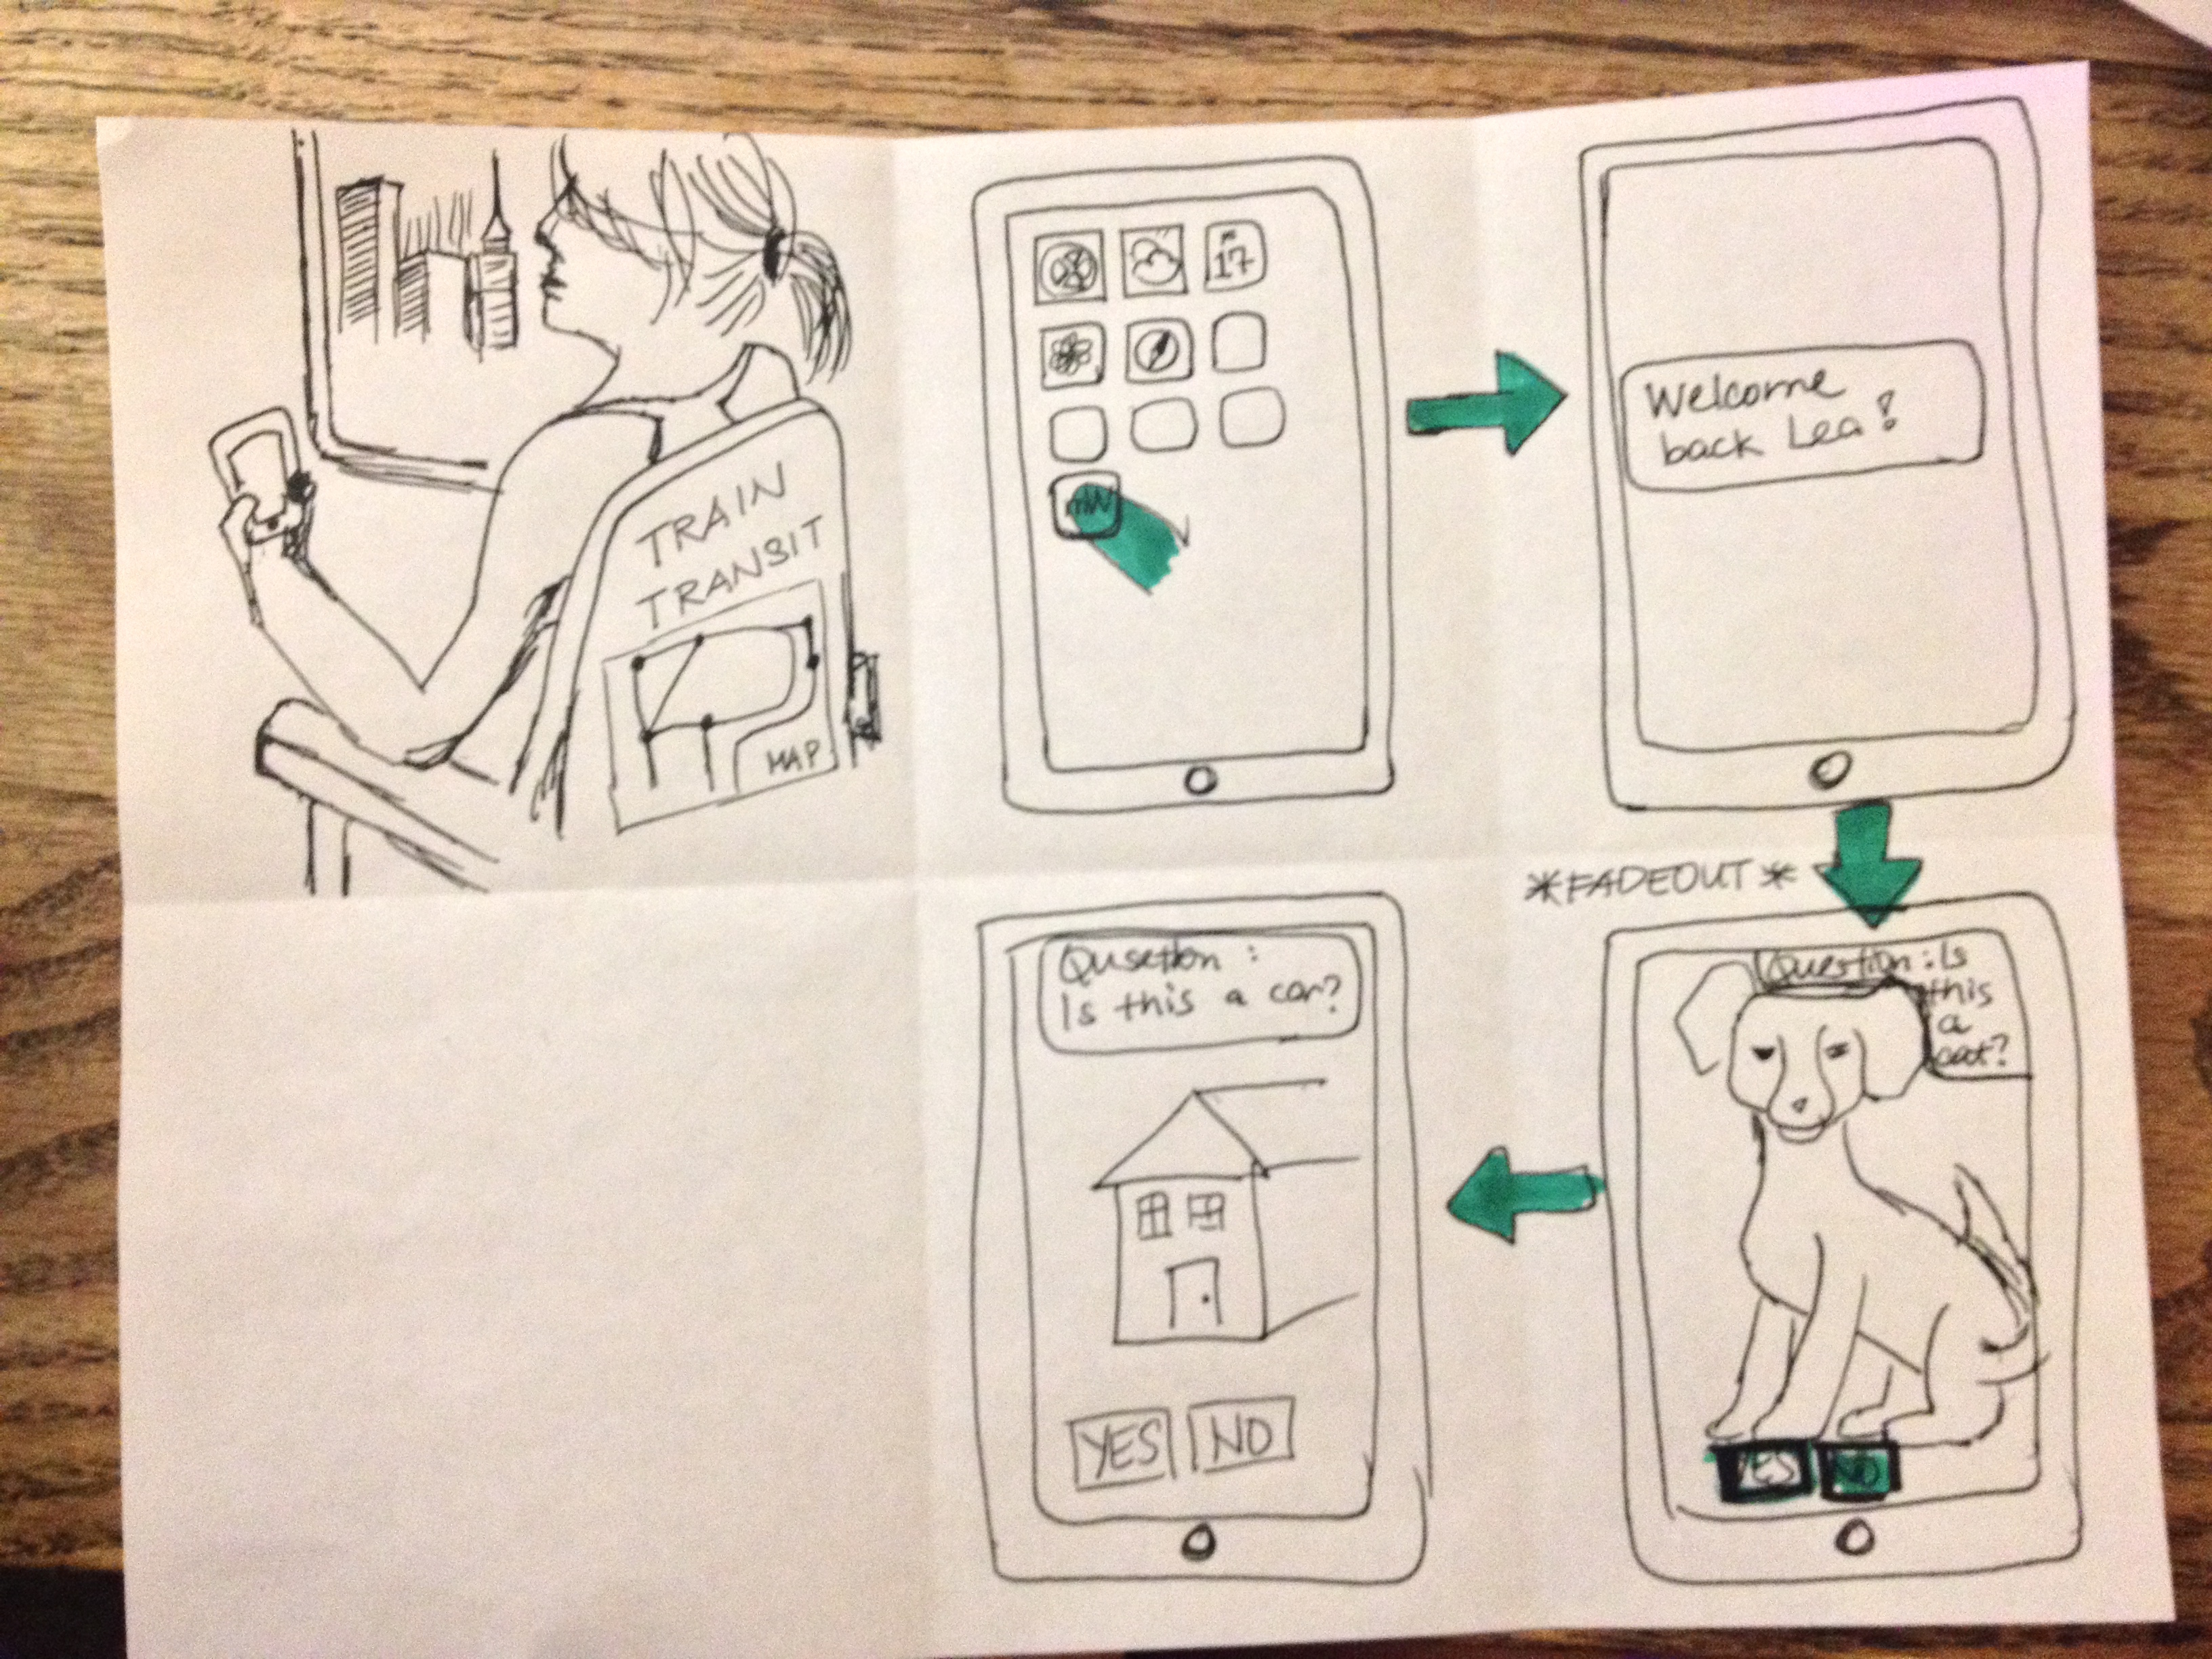 TRAIN
TRANSIT
MAP
17
mW
Welcome
back Lea!
*FADEOUT*
Question: Is
this
a
cat?
YES NO
Qusetion:
Is this a car?
YES NO